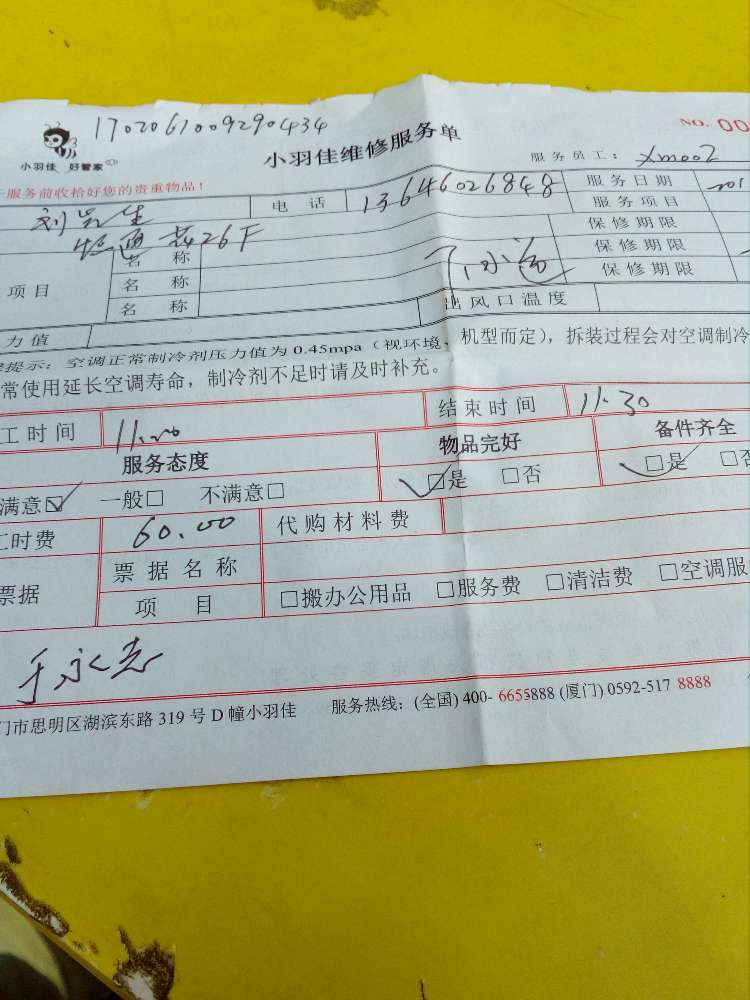 1702061009290434
小羽佳 好管家
小羽佳维修服务单
NO. 00
服务员工: xm002
服务前收拾好您的贵重物品!
刘先生 电话 13646026848 服务日期 201
服务项目
26F
名称 保修期限
项目 名称 保修期限
名称 出风口温度 保修期限
力值
提示: 空调正常制冷剂压力值为 0.45mpa (视环境、机型而定), 拆装过程会对空调制冷
常使用延长空调寿命, 制冷剂不足时请及时补充。
工时间 11.00 结束时间 11.30
服务态度 物品完好 备件齐全
满意☑ 一般□ 不满意□ □是 □否 □是 □否
工时费 60.00 代购材料费
票据 票据名称
项目 □搬办公用品 □服务费 □清洁费 □空调服
于永志
门市思明区湖滨东路 319 号 D 幢小羽佳 服务热线: (全国) 400- 6655888 (厦门) 0592-517 8888